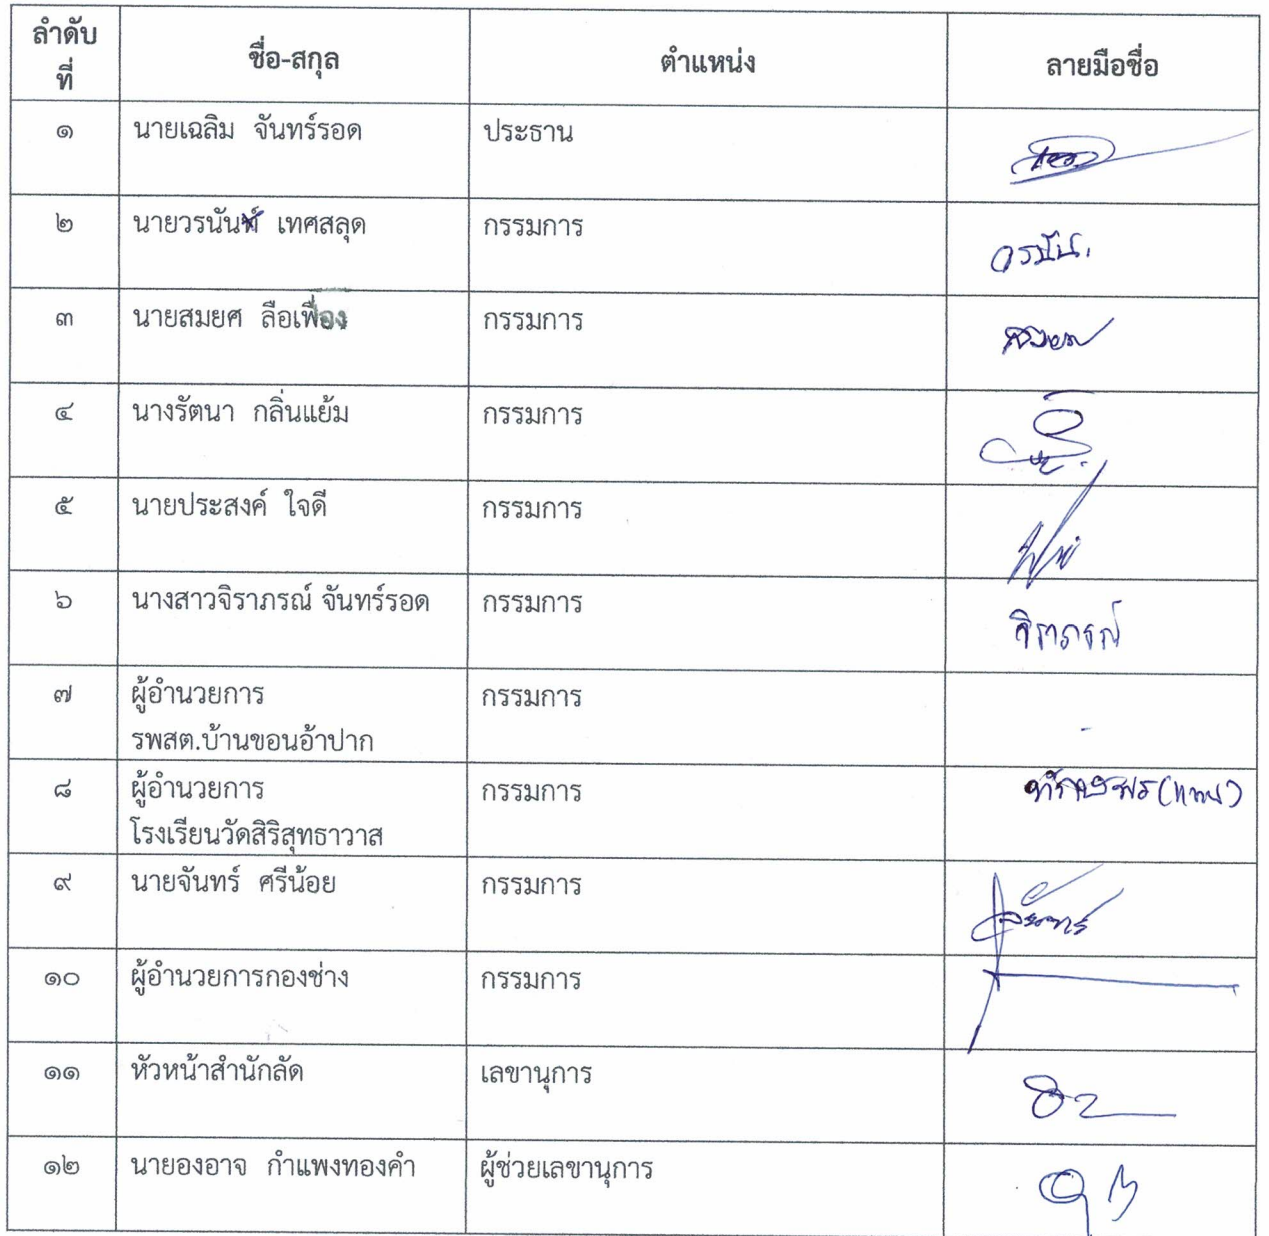 ลำดับ
ที่
ชื่อ-สกุล
ตำแหน่ง
ลายมือชื่อ
๑ นายเฉลิม จันทร์รอด ประธาน
๒ นายวรนันท์ เทศสลุด กรรมการ วรนัน.
๓ นายสมยศ ลือเฟื่อง กรรมการ สมยศ
๔ นางรัตนา กลิ่นแย้ม กรรมการ
๕ นายประสงค์ ใจดี กรรมการ
๖ นางสาวจิราภรณ์ จันทร์รอด กรรมการ จิราภรณ์
๗ ผู้อำนวยการ กรรมการ -
รพสต.บ้านขอนอ้าปาก
๘ ผู้อำนวยการ กรรมการ (แทน)
โรงเรียนวัดสิริสุทธาวาส
๙ นายจันทร์ ศรีน้อย กรรมการ จันทร์
๑๐ ผู้อำนวยการกองช่าง กรรมการ
๑๑ หัวหน้าสำนักลัด เลขานุการ
๑๒ นายองอาจ กำแพงทองคำ ผู้ช่วยเลขานุการ